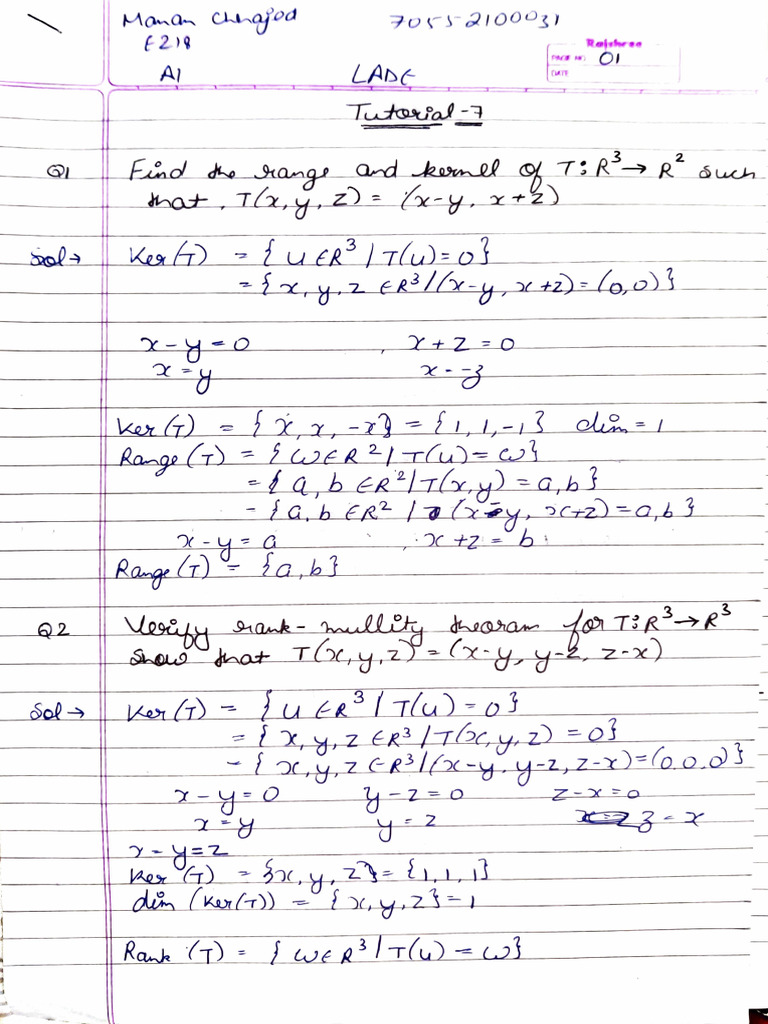 Manan Chhajed 70552100031
E218
A1 LADE
Rajshree
PAGE NO. 01
DATE
Tutorial-7
Q1 Find the range and kernel of T:R³→R² such
that, T(x,y,z) = (x-y, x+z)
Sol→ Ker(T) = {U∈R³/T(u)=0}
= {x,y,z ∈R³/(x-y, x+z)=(0,0)}
x-y=0 , x+z=0
x=y x=-z
Ker(T) = {x,x,-x} = {1,1,-1} dim=1
Range(T) = {W∈R²/T(u)=w}
= {a,b ∈R²/T(x,y)=a,b}
= {a,b ∈R² / (x-y, x+z)=a,b}
x-y=a , x+z=b
Range(T) = {a,b}
Q2 Verify rank-nullity theoram for T:R³→R³
show that T(x,y,z)=(x-y, y-z, z-x)
Sol→ Ker(T) = {U∈R³/T(u)=0}
= {x,y,z∈R³/T(x,y,z)=0}
= {x,y,z∈R³/(x-y, y-z, z-x)=(0,0,0)}
x-y=0 y-z=0 z-x=0
x=y y=z z=x
x-y=z
Ker(T) = {x,y,z} = {1,1,1}
dim(Ker(T)) = {x,y,z}=1
Rank(T) = {W∈R³/T(u)=w}